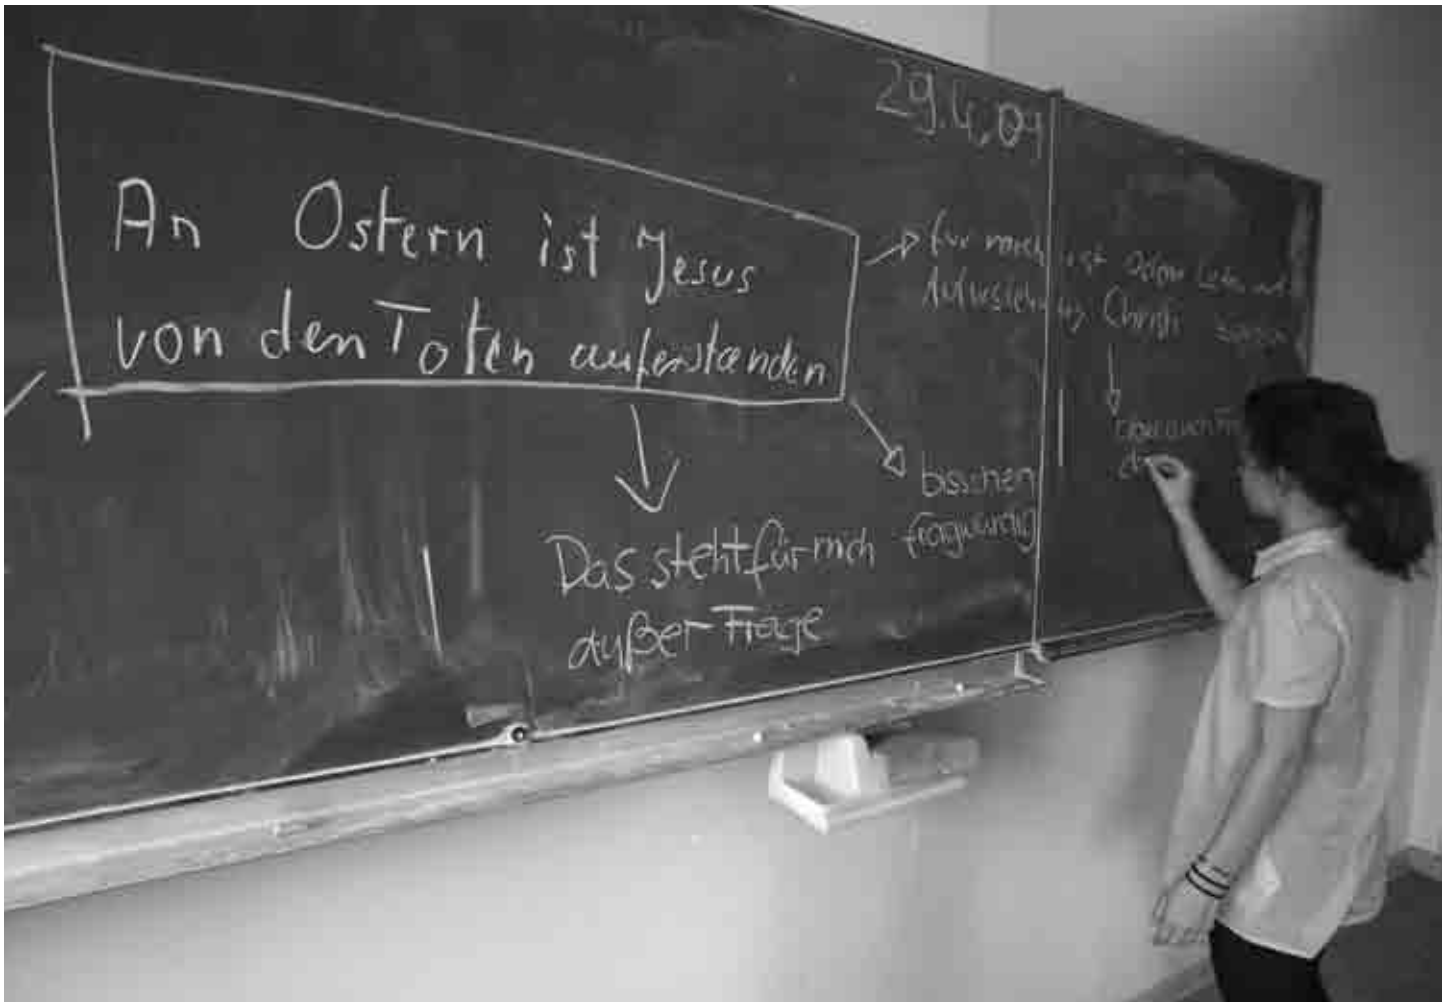 29.4.09
An Ostern ist Jesus
von den Toten auferstanden
für mich ist Ostern
Auferstehung Christi
bisschen
fragwürdig
Das steht für mich
außer Frage